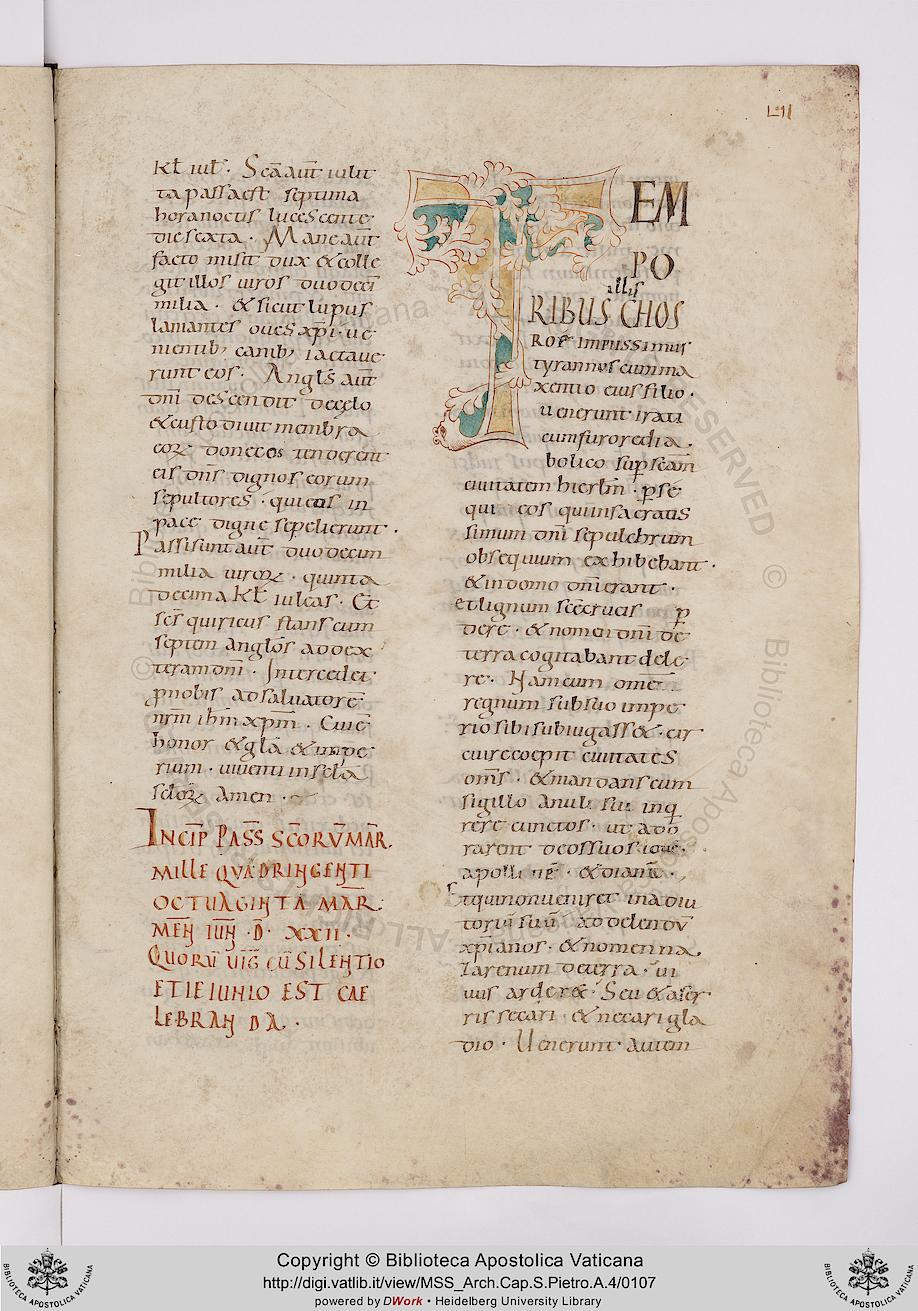 LII
kł iuł · Scā aut̄ iulit
ta passa est septima
hora noctis lucescente
die sexta · Mane aut̄
facto misit dux & colle
git illos uiros duodeci
milia · & sicut lupus
laniantes oues xp̄i · ue
nientib; canib; iactaue
runt eos · Angłs aut̄
dn̄i descendit de celo
& custodiuit membra
eoꝝ donec os tenderent
eis dn̄s dignos eorum
sepultores · qui eos in
pace digne sepelierunt ·
Passi sunt aut̄ duodecim
milia uiroꝝ · quinta
decima kł iulias · Et
scs̄ quiricus stans cum
septem anglōs ad dex
teram dn̄i · Intercedet
ꝓ nobis ad saluatorē
nr̄m ihm̄ xpm̄ · Cui ē
honor & glā & impe
rium · uiuenti in sclā
scloꝝ amen ·
INCIP̄ PASS̄ SC̄ORV̄ MAR̄.
MILLE QVADRINGENTI
OCTUAGINTA MAR̄
MEN̄ IUN̄ · D · XXII ·
QUORŪ UIḠ CŪ SILENTIO
ET IEIUNIO EST CAE
LEBRANDA ·
TEM
PO
illis
RIBUS CHOS
ROE impiissimus
tyrannus cum ma
xentio eius filio ·
uenerunt irati
cum furore dia
bolico sup̄ scām
ciuitatem hierłm · ꝑse
qui eos qui in sacratis
simum dn̄i sepulchrum
obsequium exhibebant ·
& in domo dn̄i erant ·
et lignum scē crucis ꝑ
dere · & nomen dn̄i de
terra cogitabant dele
re · Nam cum omē
regnum sub suo impe
rio sibi subiugass& · cir
cuire coepit ciuitates
om̄s · & mandans cum
sigillo anuli sui inq̄
rere cunctos · ut ado
rarent deos suos ioue ·
apollinē · & dianā ·
Et qui non ueniret in adiu
toriū suū ad delendū
xp̄ianos · & nomen na
zarenum de terra · ui
uus arder& · Seu & a fer
ris secari · & necari gla
dio · Uenerunt autem
Copyright © Biblioteca Apostolica Vaticana
http://digi.vatlib.it/view/MSS_Arch.Cap.S.Pietro.A.4/0107
powered by DWork • Heidelberg University Library